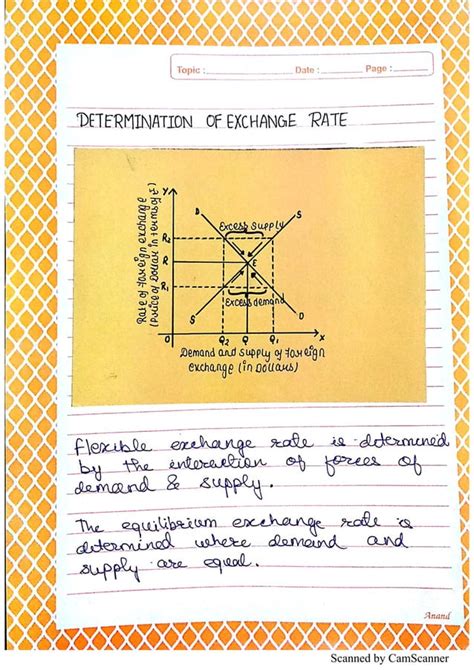 Topic : Date : Page :
DETERMINATION OF EXCHANGE RATE
Rate of foreign exchange
(Price of Dollar in terms of ₹)
Y
D
S
Excess supply
R2
R
E
R1
Excess demand
S
D
O
Q2
Q
Q1
X
Demand and supply of foreign
exchange (in Dollars)
flexible exchange rate is determined
by the interaction of forces of
demand & supply.
The equilibrium exchange rate is
determined where demand and
supply are equal.
Anand
Scanned by CamScanner